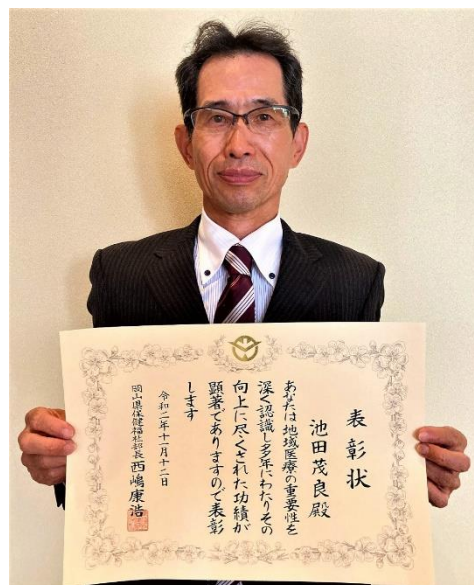 表彰状
池田茂良殿
あなたは地域医療の重要性を
深く認識し多年にわたりその
向上に尽くされた功績が
顕著でありますので表彰
します
令和二年十一月十二日
岡山県保健福祉部長 西嶋康浩